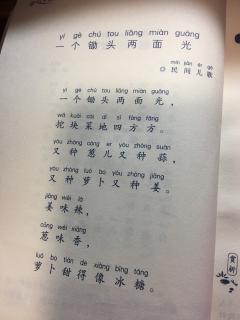 yí gè chú tou liǎng miàn guāng
一个锄头两面光
mín jiān ér gē
◎民间儿歌
yí gè chú tou liǎng miàn guāng
一个锄头两面光，
wā kuài cài dì sì fāng fāng
挖块菜地四方方。
yòu zhòng cōng ér yòu zhòng suàn
又种葱儿又种蒜，
yòu zhòng luó bo yòu zhòng jiāng
又种萝卜又种姜。
jiāng wèi là
姜味辣，
cōng wèi xiāng
葱味香，
luó bo tián de xiàng bīng táng
萝卜甜得像冰糖。
赏析